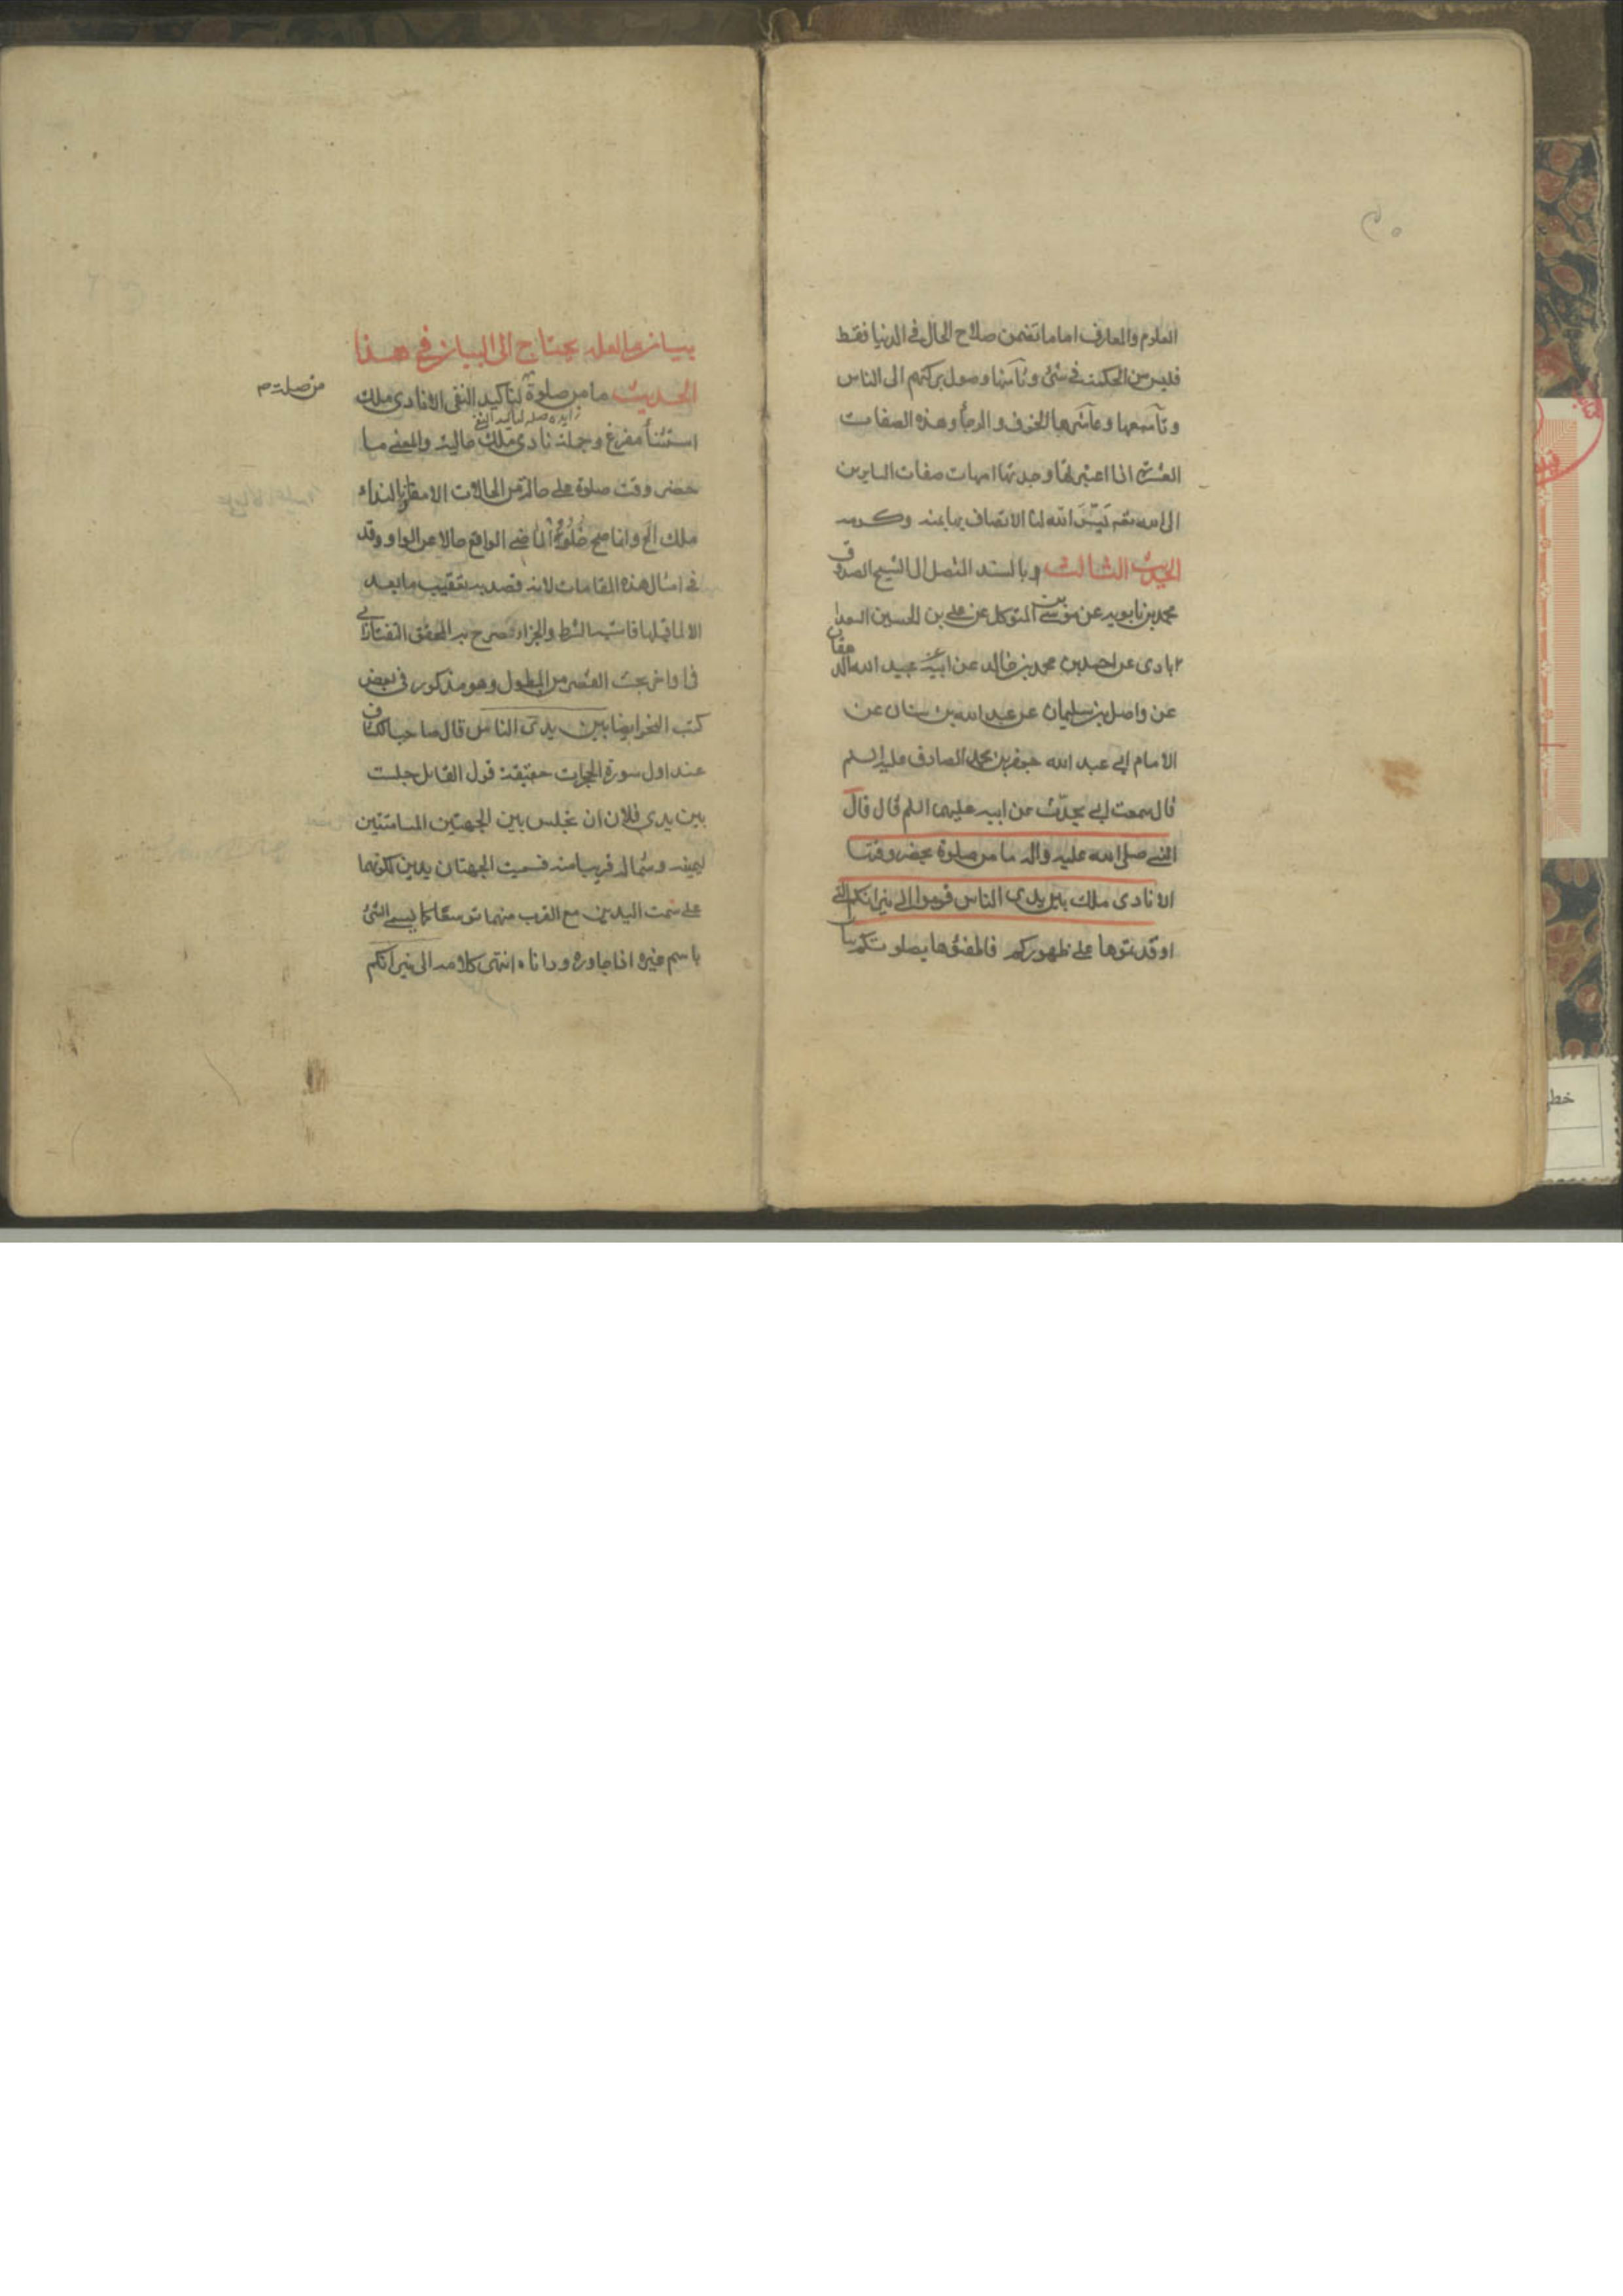 العلوم والمعارف اما ما تضمن صلاح الحال في الدنيا فقط
فليس من الحكمة في شئ وثامنها وصول بركتهم الى الناس
وتاسعها وعاشرها الخوف والرجأ وهذه الصفات
العشر اذا اعتبرتها وجدتها امهات صفات السايرين
الى الله تعـ يَسَّرَ الله لنا الاتصاف بها بمنه وكرمه
الحديث الثالث وبالسند المتصل الى الشيخ الصدوق
محمد بن بابويه عن موسى بن المتوكل عن علي بن الحسين السعدا
ابادى عن احمد بن محمد بن خالد عن ابيه عن عبيد الله الدهقان
عن واصل بن سليمان عن عبد الله بن سنان عن
الامام ابي عبد الله جعفر بن محمد الصادق عليه السلم
قال سمعت ابي يحدّث عن ابيه عليهما السلم قال قال
النبي صلى الله عليه واله ما من صلوة يحضر وقتها
الا نادى ملك بين يدي الناس قوموا الى نيرانكم التي
اوقدتموها على ظهوركم فاطفئوها بصلوتكم
بيان ما لعله يحتاج الى البيان في هذا
الحديث ما من صلوة لتاكيد النفى الا نادى ملك
من صلة م
زايده صله لتاكيد النفي
استثنأ مفرغ وجملة نادى ملك حالية والمعنى ما
حضر وقت صلوة على حالة من الحالات الا مقارنا لنداء
ملك الخ وانما صح خلو الماضي الواقع حالا عن الواو وقد
في امثال هذه المقامات لانه قصد به تعقيب ما بعد
الا لما قبلها فاشبه الشرط والجزاء صرح به المحقق التفتازاني
في اواخر بحث القصر من المطول وهو مذكور في بعض
كتب النحو ايضا بين يدى الناس قال صاحب الكشاف
عند اول سورة الحجرات حقيقة قول القائل جلست
بين يدي فلان ان تجلس بين الجهتين المسامتتين
ليمينه وشماله قريبا منه فسميت الجهتان يدين لكونهما
على سمت اليدين مع القرب منهما توسعًا كما يسمى الشئ
باسم غيره اذا جاوره وداناه انتهى كلامه الى نيرانكم